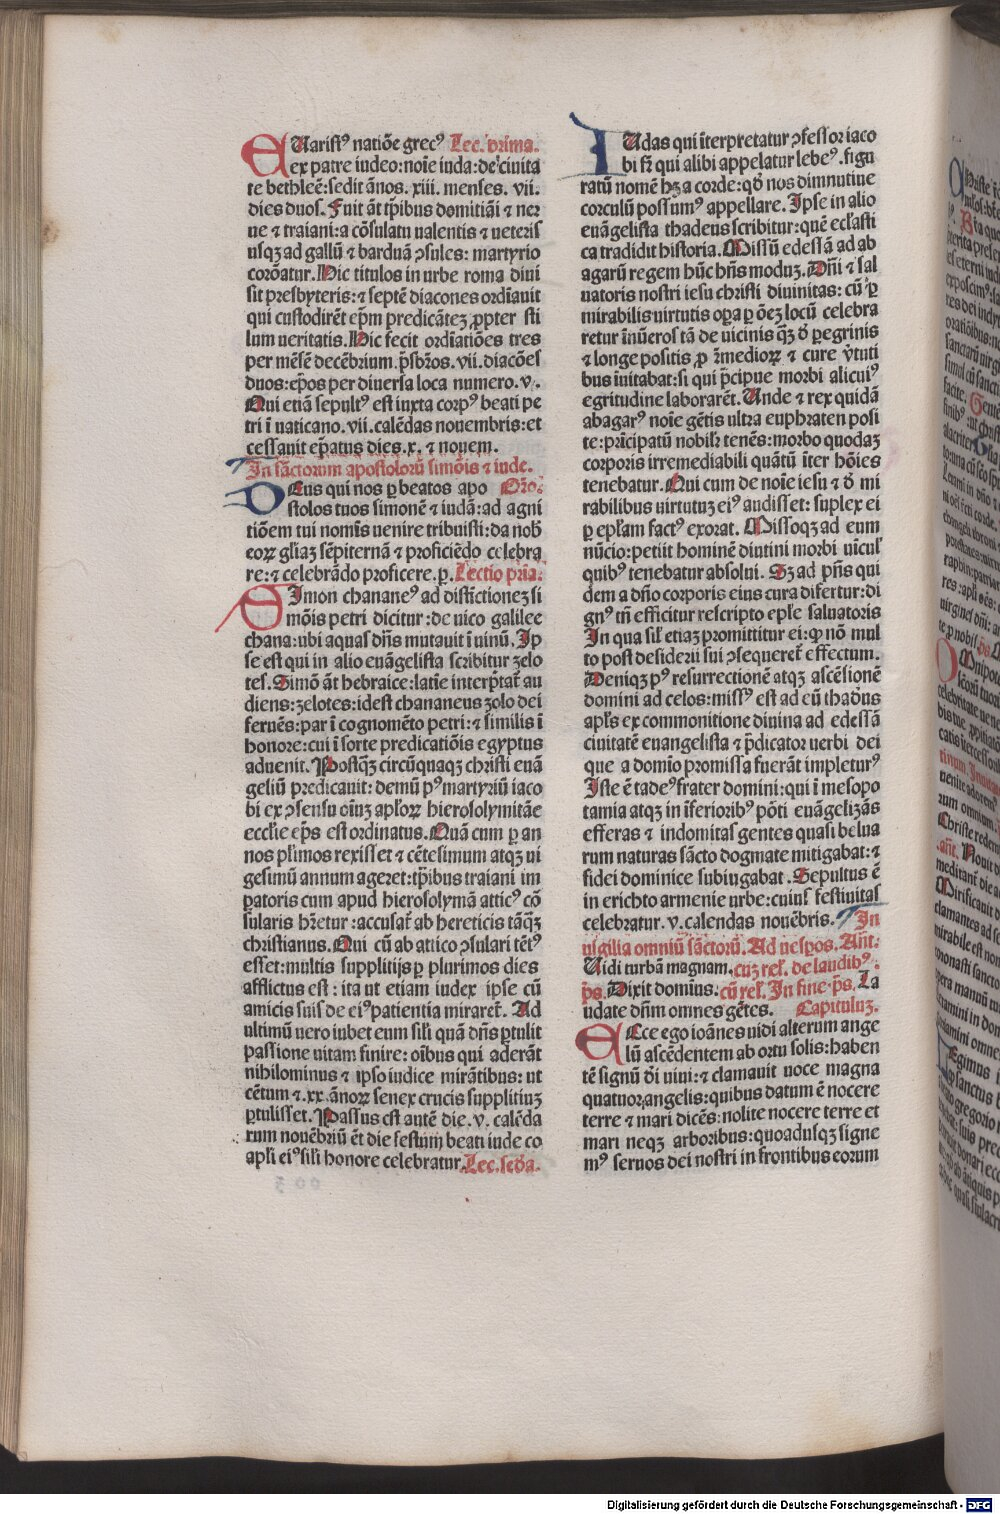 EUaristꝰ natiōe grecꝰ Lec. prima.
ex patre iudeo: noīe iuda: de ciuita
te bethleē: sedit ānos. xiii. menses. vii.
dies duos. Fuit āt tp̄ibus domitiāi ⁊ ner
ue ⁊ traiani: a cōsulatu ualentis ⁊ ueteris
usqꝫ ad gallū ⁊ barduā ꝯsules: martyrio
corōatur. Hic titulos in urbe roma diui
sit presbyteris: ⁊ septē diacones ordīauit
qui custodirēt ep̄m predicāteꝫ ꝓpter sti
lum ueritatis. Hic fecit ordīatiōes tres
per mēsē decēbrium. p̄sbr̄os. vii. diacōes
duos: ep̄os per diuersa loca numero. v.
Qui etiā sepultꝰ est iuxta corpꝰ beati pe
tri ī uaticano. vii. calēdas nouembris: et
cessauit ep̄atus dies. x. ⁊ nouem.
In sāctorum apostolorū simōis ⁊ iude.
DEus qui nos ꝑ beatos apo Orō.
stolos tuos simonē ⁊ iudā: ad agni
tiōem tui nomīs uenire tribuisti: da nob̄
eoꝝ gl̄iaꝫ sēpiternā ⁊ proficiēdo celebra
re: ⁊ celebrādo proficere. ꝑ. Lectio pria.
SImon chananeꝰ ad distīctioneꝫ si
mōis petri dicitur: de uico galilee
chana: ubi aquaꝫ dn̄s mutauit ī uinū. Ip
se est qui in alio euāgelista scribitur ꝫelo
tes. Simō āt hebraice: latīe interp̄tat̄ au
diens: ꝫelotes: idest chananeus ꝫolo dei
feruēs: par ī cognomēto petri: ⁊ similis ī
honore: cui ī sorte predicatiōis egyptus
aduenit. Postqꝫ̄ circūquaqꝫ christi euā
geliū predicauit: demū pꝰ martyriū iaco
bi ex ꝯsensu oīuꝫ apl̄oꝝ hierosolymitāe
eccl̄ie ep̄s est ordinatus. Quā cum ꝑ an
nos pl̄imos rexisset ⁊ cētesimum atqꝫ ui
gesimū annum ageret: tp̄ibus traiani im
ꝑatoris cum apud hierosolymā atticꝰ cō
sularis hr̄etur: accusat̄ ab hereticis tāqꝫ̄
christianus. Qui cū ab atiico ꝯsulari tētꝰ
esset: multis supplitijs ꝑ plurimos dies
afflictus est: ita ut etiam iudex ipse cū
amicis suis de eiꝰ patientia miraret̄. Ad
ultimū uero iubet eum sil̄i quā dn̄s ꝑtulit
passione uitam finire: oībus qui aderāt
nihilominus ⁊ ipso iudice mirātibus: ut
cētum ⁊. xx. ānoꝝ senex crucis supplitiuꝫ
ꝑtulisset. Passus est autē die. v. calēda
rum nouēbriū ēt die festum beati iude co
apl̄i eiꝰ sil̄i honore celebratur. Lec. scd̄a.
IUdas qui īterpretatur ꝯfessor iaco
bi fr̄ qui alibi appelatur lebeꝰ. figu
ratū nomē hꝫ a corde: qd̄ nos dimnutiue
corculū possumꝰ appellare. Ipse in alio
euāgelista thadeus scribitur: quē ecl̄asti
ca tradidit historia. Missū edessā ad ab
agarū regem hūc hn̄s moduꝫ. Dn̄i ⁊ sal
uatoris nostri iesu christi diuinitas: cū ꝑ
mirabilis uirtutis oꝑa ꝑ ōeꝫ locū celebra
retur īnūeros tā de uicinis qꝫ̄ d̄ ꝑegrinis
⁊ longe positis ꝓ r̄medioꝝ ⁊ cure v̄tuti
bus īuitabat: si qui p̄cipue morbi alicuiꝰ
egritudine laborarēt. Unde ⁊ rex quidā
abagarꝰ noīe gētis ultra euphraten posi
te: prīcipatū nobilr̄ tenēs: morbo quodaꝫ
corporis irremediabili quātū īter hōies
tenebatur. Qui cum de noīe iesu ⁊ d̄ mi
rabilibus uirtutuꝫ eiꝰ audisset: suplex ei
ꝑ epl̄am factꝰ exorat. Missoqꝫ ad eum
nūcio: petiit hominē diutini morbi uīcul̄
quibꝰ tenebatur absolui. Sꝫ ad p̄ns qui
dem a dn̄o corporis eius cura difertur: di
gnꝰ tn̄ efficitur rescripto epl̄e saluatoris
In qua sil̄ etiaꝫ promittitur ei: ꝙ nō mul
to post desiderii sui ꝯsequeret̄ effectum.
Deniqꝫ pꝰ resurrectionē atqꝫ ascēsionē
domini ad celos: missꝰ est ad eū thad̄us
apl̄s ex commonitione diuina ad edessā
ciuitatē euangelista ⁊ p̄dicator uerbi dei
que a domīo promissa fuerāt impleturꝰ
Iste ē tadeꝰ frater domini: qui ī mesopo
tamia atqꝫ in īferioribꝰ pōti euāgeliꝫās
efferas ⁊ indomitas gentes quasi belua
rum naturas sācto dogmate mitigabat: ⁊
fidei dominice subiugabat. Sepultus ē
in erichto armenie urbe: cuius festiuitas
celebratur. v. calendas nouēbris. In
uigilia omniū sāctorū. Ad uesꝑos. Ant̄.
Uidi turbā magnam. cuꝫ rel̄. de laudibꝰ.
p̄s. Dixit domīus. cū rel̄. In fine. p̄s. La
udate dn̄m omnes gētes. Capituluꝫ.
ECce ego ioānes uidi alterum ange
lū ascēdentem ab ortu solis: haben
tē signū d̄i uiui: ⁊ clamauit uoce magna
quatuor angelis: quibus datum ē nocere
terre ⁊ mari dicēs: nolite nocere terre et
mari neqꝫ arboribus: quoadusqꝫ signe
mꝰ seruos dei nostri in frontibus eorum
Digitalisierung gefördert durch die Deutsche Forschungsgemeinschaft - DFG